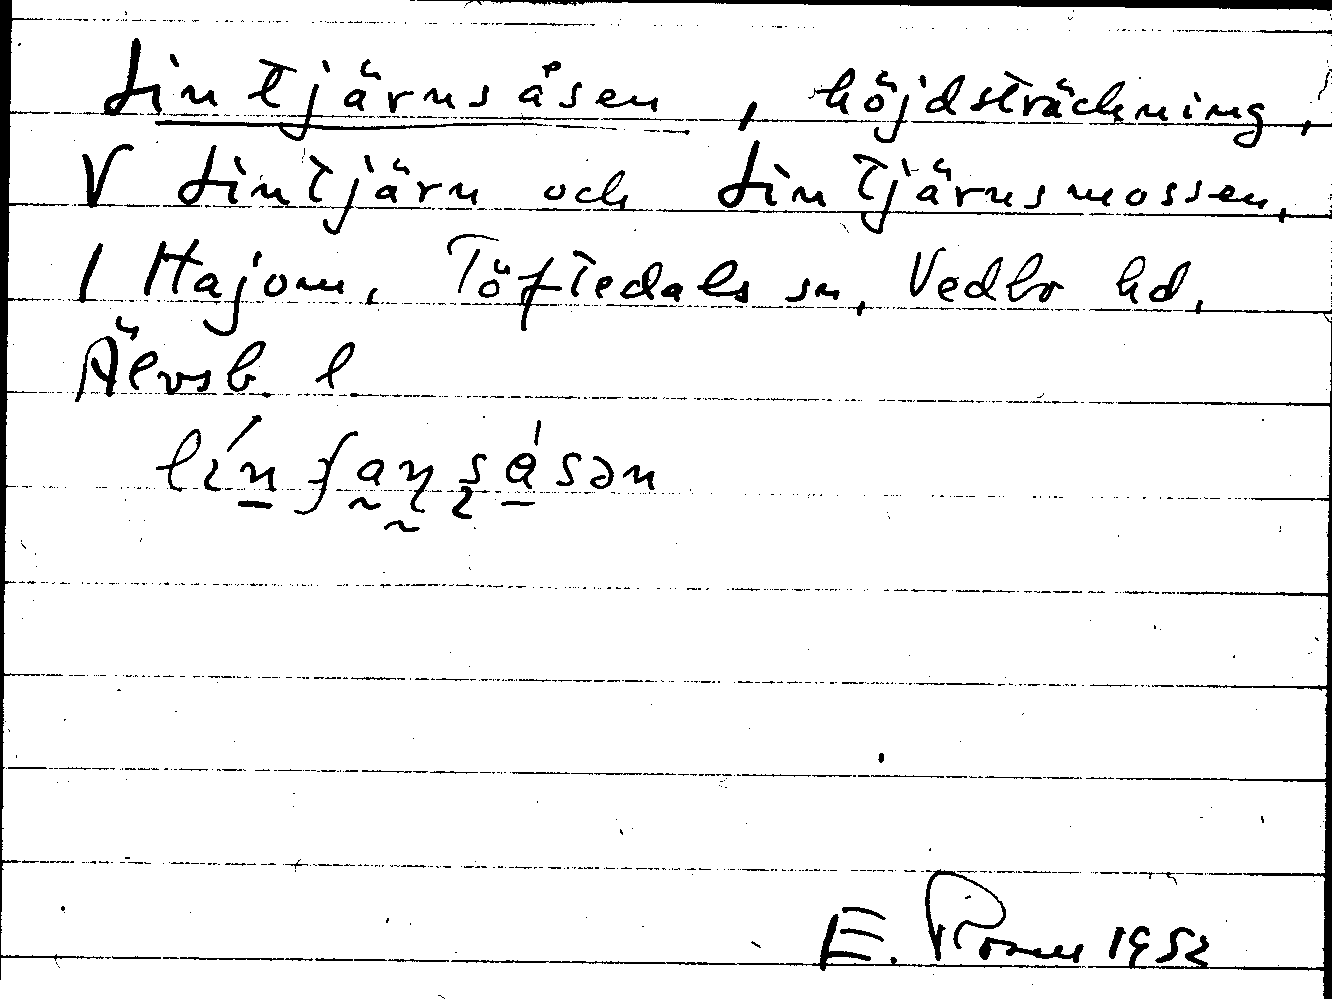 Lintjärnsåsen, höjdsträckning,
V Lintjärn och Lintjärnsmossen,
i Hajom, Töftedals sn, Vedbo hd,
Älvsb. l
E. Rosen 1952